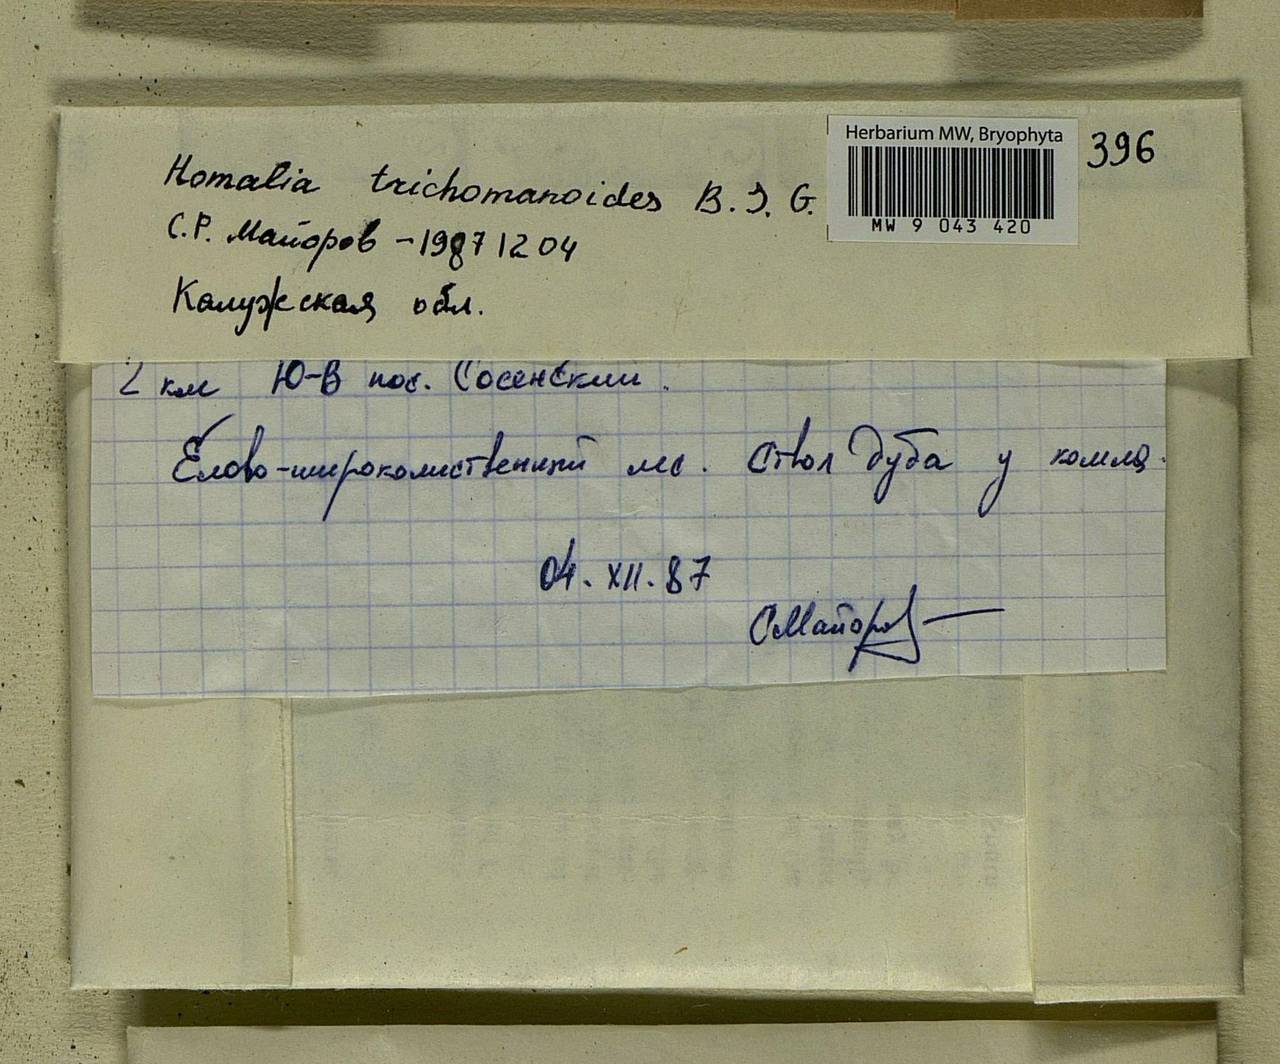 Herbarium MW, Bryophyta
396
MW 9 043 420
Homalia trichomanoides B.S.G.
С.Р. Майоров - 1987 12 04
Калужская обл.
2 км Ю-В пос. Сосенский.
Елово-широколиственный лес. Ствол дуба у комля.
04.XII.87
СМайоров